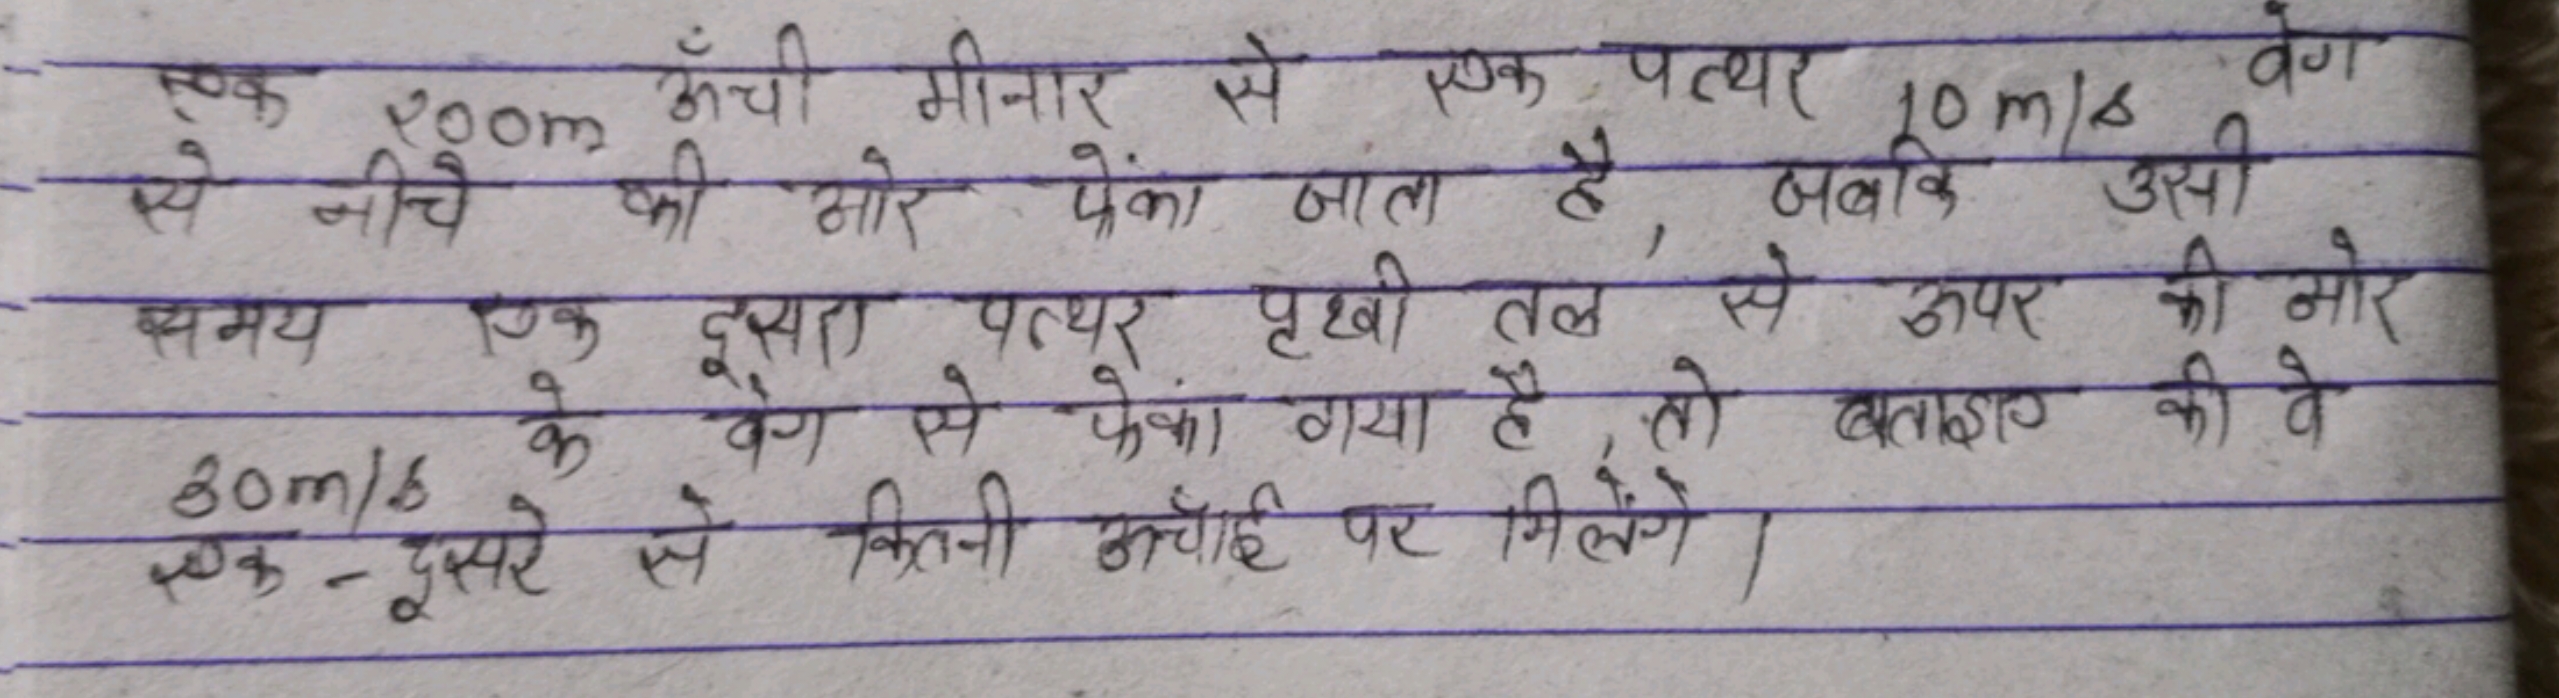 एक 200m ऊँची मीनार से एक पत्थर 10 m/s वेग
से नीचे की ओर फेंका जाता है, जबकि उसी
समय एक दूसरा पत्थर पृथ्वी तल से ऊपर की ओर
30m/s के वेग से फेंका गया है, तो बताइए की वे
एक - दूसरे से कितनी ऊचाँई पर मिलेंगे।